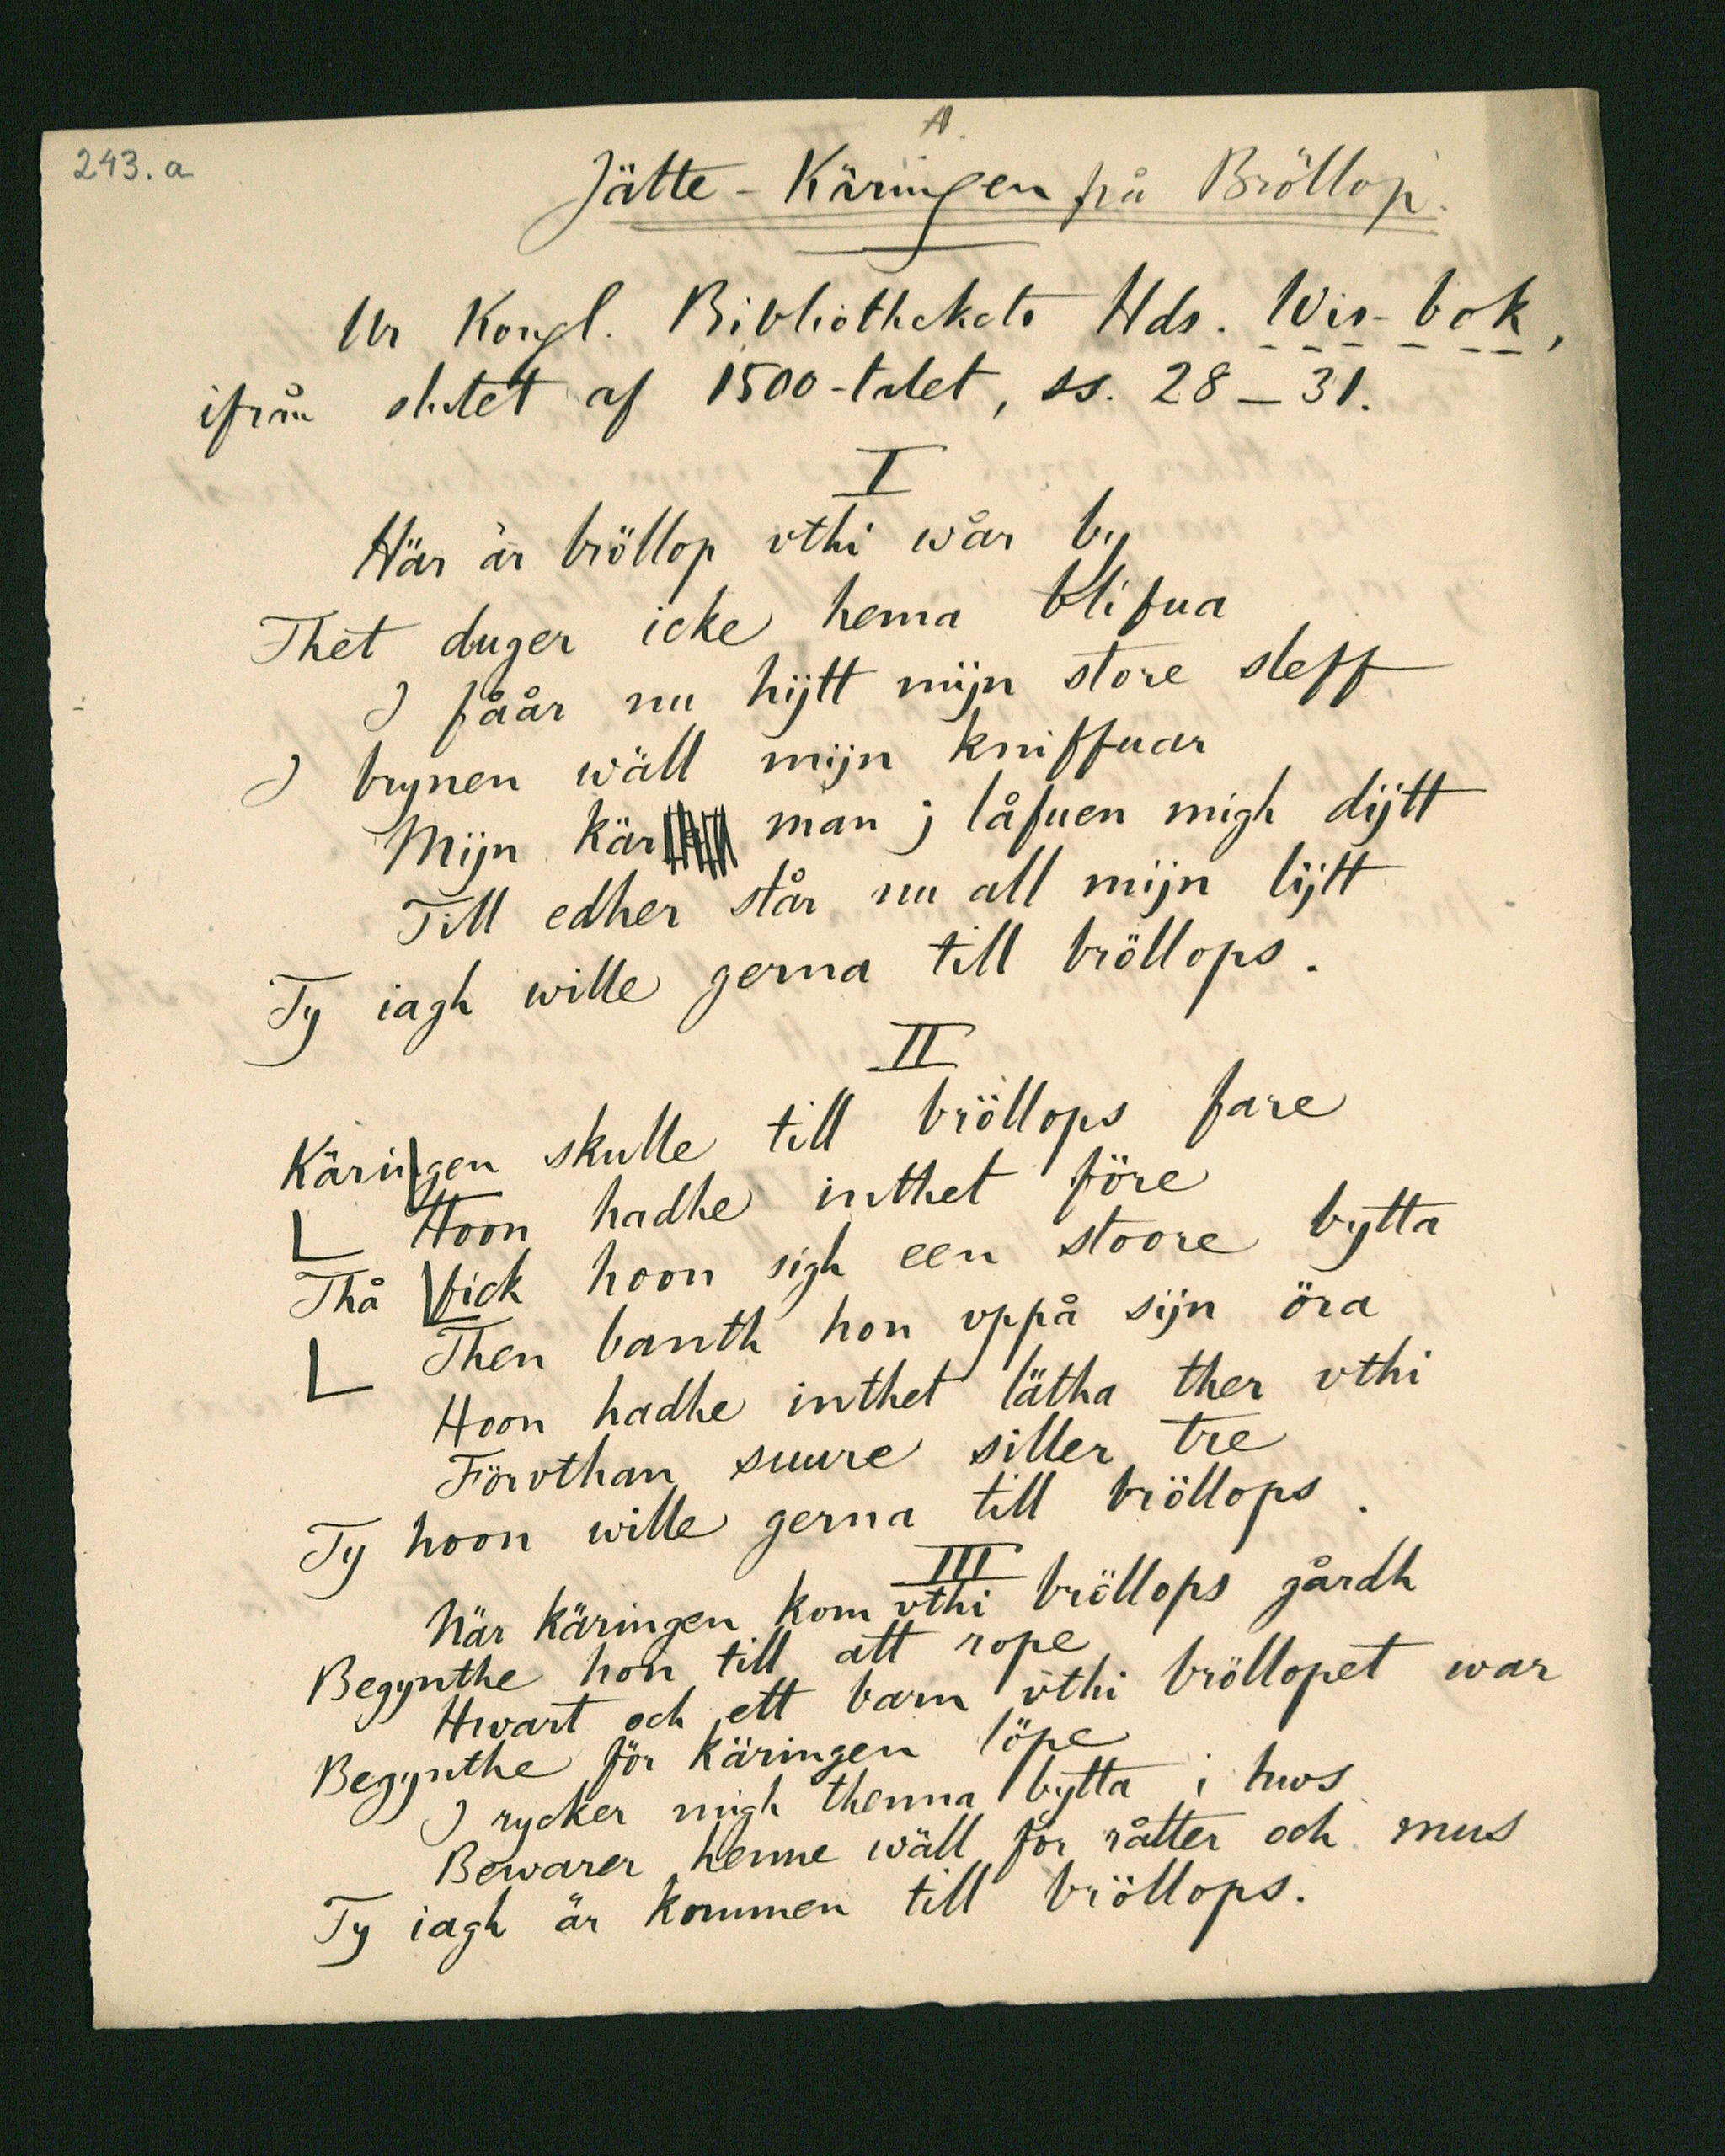 243. a
A.
Jätte-Käringen på Bröllop.
Ur Kongl. Bibliothekets Hds. Wis-bok,
ifrån slutet af 1500-talet, ss. 28-31.
I
Här är bröllop vthi wår by
Thet duger icke hema blifua
I fåår nu hijtt mijn store sleff
I brynen wäll mijn kniffuar
Mijn kär man j låfuen migh dijtt
Till edher står nu all mijn lijtt
Ty iagh wille gerna till bröllops.
II
Käringen skulle till bröllops fare
Hoon hadhe inthet före
Thå fick hoon sigh een stoore bytta
Then banth hon vppå sijn öra
Hoon hadhe inthet lätha ther vthi
Förvthan suure siller tre
Ty hoon wille gerna till bröllops.
III
När käringen kom vthi bröllops gårdh
Begynthe hon till att rope
Hwart och ett barn vthi bröllopet war
Begynthe för käringen löpe
I rycker migh thenna bytta i hws
Bewarer henne wäll för råtter och mus
Ty iagh är kommen till bröllops.